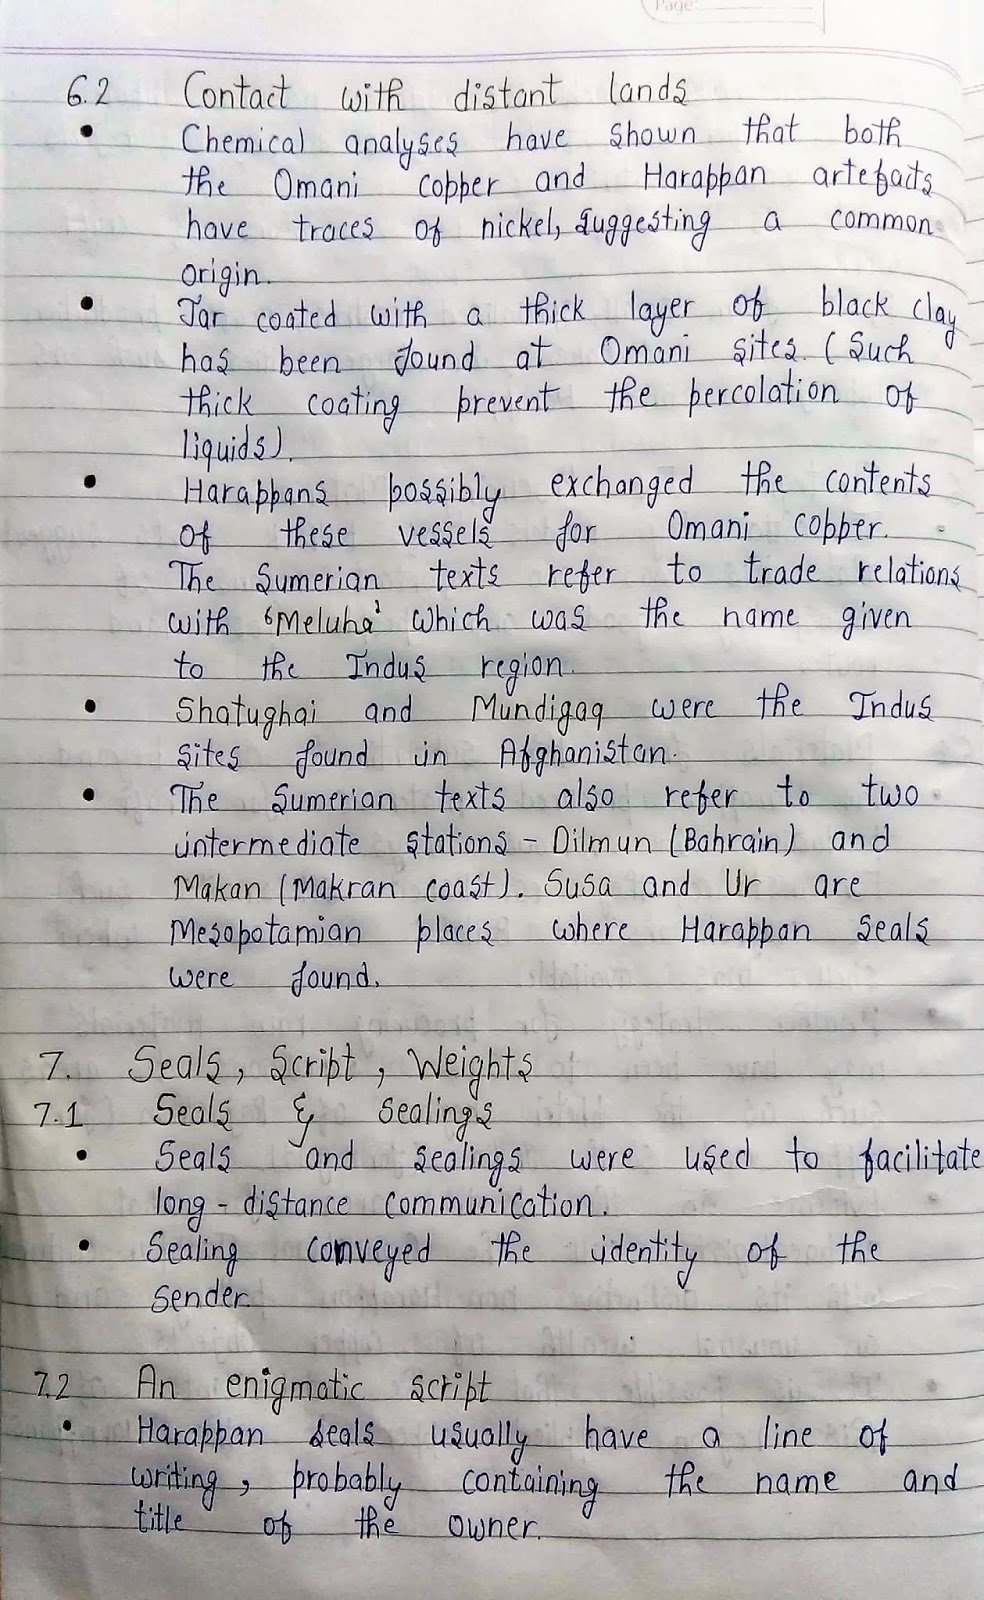 Page:
6.2 Contact with distant lands
• Chemical analyses have shown that both
the Omani copper and Harappan artefacts
have traces of nickel, suggesting a common
origin.
• Jar coated with a thick layer of black clay
has been found at Omani sites. (Such
thick coating prevent the percolation of
liquids).
• Harappans possibly exchanged the contents
of these vessels for Omani copper.
The Sumerian texts refer to trade relations
with 'Meluha' which was the name given
to the Indus region.
• Shatughai and Mundigaq were the Indus
sites found in Afghanistan.
• The Sumerian texts also refer to two
intermediate stations - Dilmun (Bahrain) and
Makan (Makran coast). Susa and Ur are
Mesopotamian places where Harappan seals
were found.
7. Seals, Script, Weights
7.1 Seals & Sealings
• Seals and sealings were used to facilitate
long-distance communication.
• Sealing conveyed the identity of the
sender.
7.2 An enigmatic script
• Harappan seals usually have a line of
writing, probably containing the name and
title of the owner.